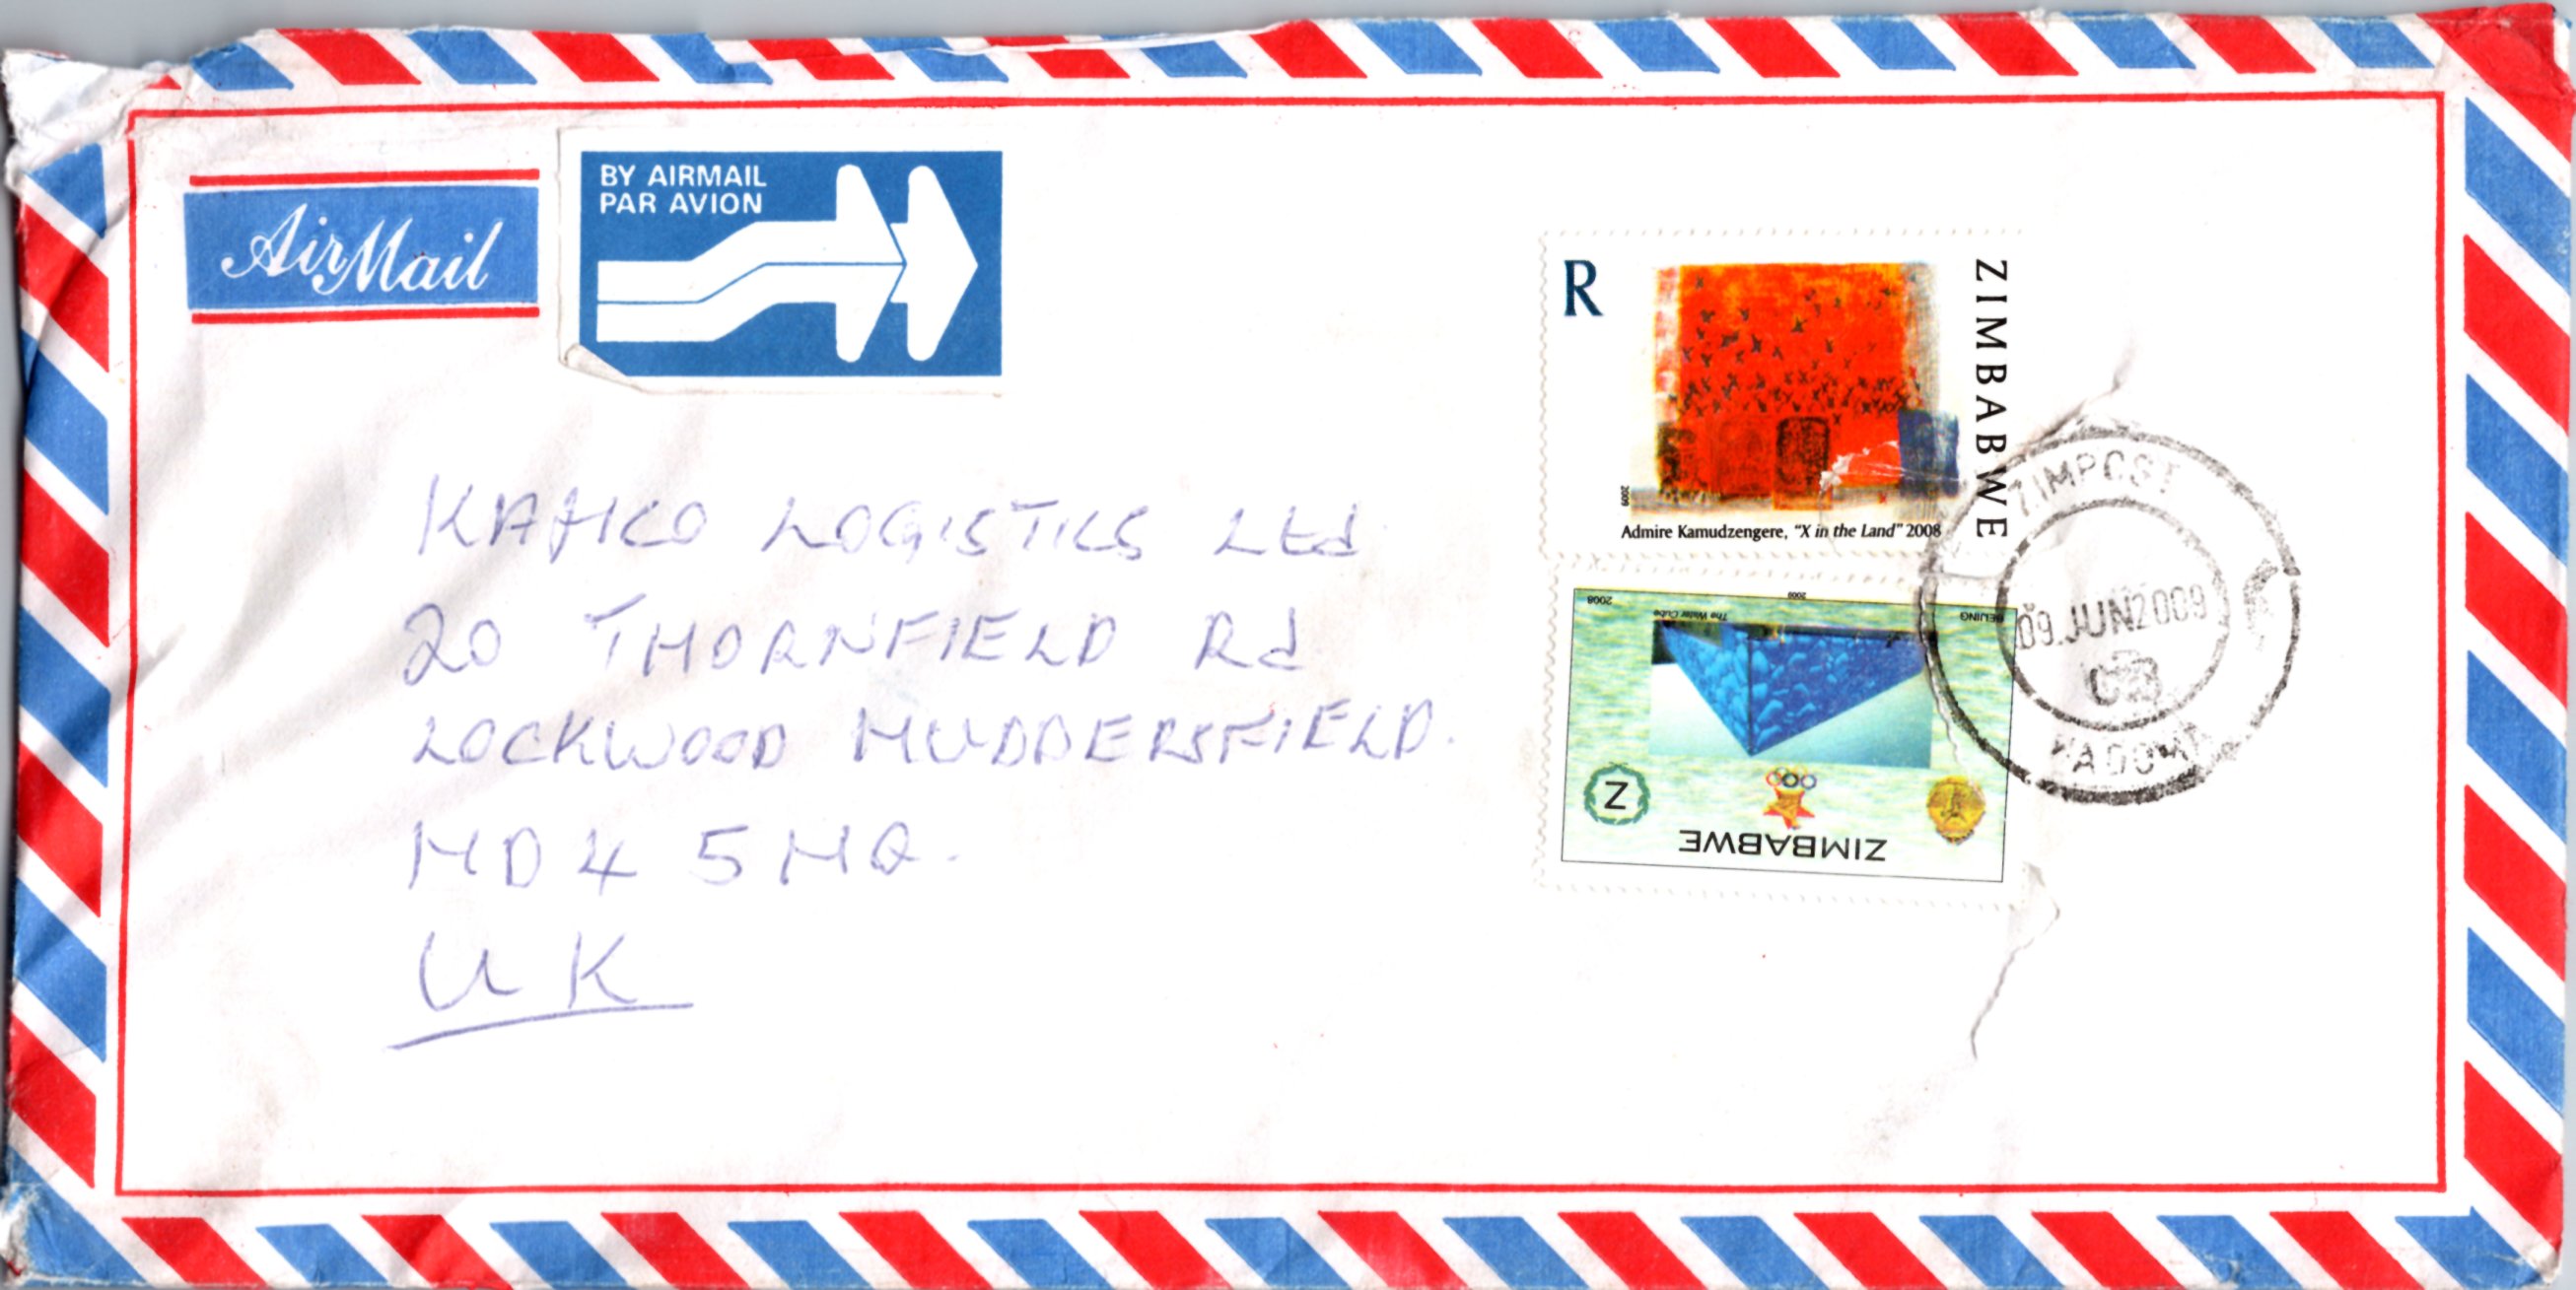 AirMail
BY AIRMAIL
PAR AVION
R
ZIMBABWE
2009
Admire Kamudzengere, "X in the Land" 2008
ZIMPOST
09.JUN2009
CB
KADOMA
2008
The Water Cube
2008
BEIJING
Z
ZIMBABWE
LOGISTICS Ltd
20 THORNFIELD Rd
LOCKWOOD HUDDERSFIELD.
HD4 5HQ.
UK